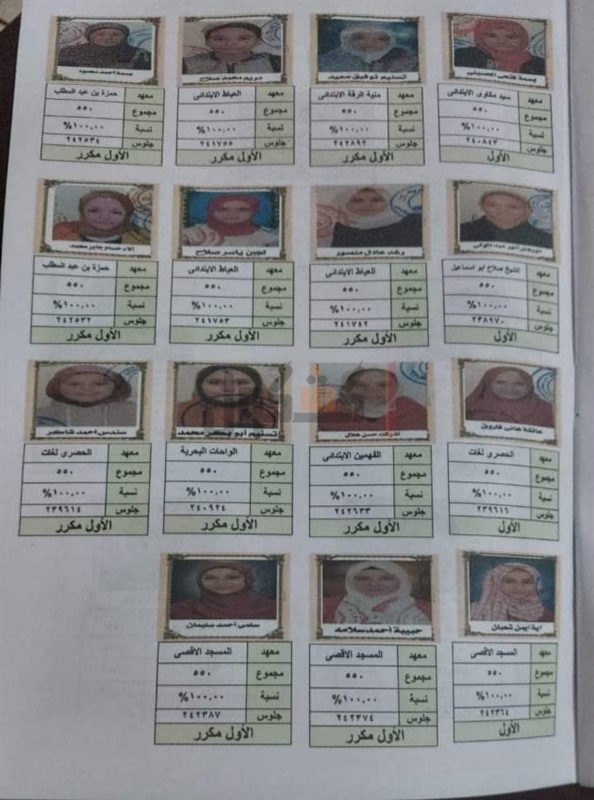 بسمة فتحى الحسينى
معهد سيد مكاوى الابتدائى
مجموع ٥٥٠
نسبة ١٠٠,٠٠%
جلوس ٢٤٠٨٤٣
الأول مكرر
تسنيم توفيق سعيد
معهد منية الرقة الابتدائى
مجموع ٥٥٠
نسبة ١٠٠,٠٠%
جلوس ٢٤٢٨٩٢
الأول مكرر
مريم محمد صلاح
معهد العياط الابتدائى
مجموع ٥٥٠
نسبة ١٠٠,٠٠%
جلوس ٢٤١٧٥٥
الأول مكرر
بسمة أحمد محمود
معهد حمزة بن عبد المطلب
مجموع ٥٥٠
نسبة ١٠٠,٠٠%
جلوس ٢٤٢٥٣٤
الأول مكرر
معهد الشيخ صلاح ابو اسماعيل
مجموع ٥٥٠
نسبة ١٠٠,٠٠%
جلوس ٢٣٨٩٧٠
الأول
رغد عادل منصور
معهد العياط الابتدائى
مجموع ٥٥٠
نسبة ١٠٠,٠٠%
جلوس ٢٤١٧٤٢
الأول مكرر
لجين ياسر صلاح
معهد العياط الابتدائى
مجموع ٥٥٠
نسبة ١٠٠,٠٠%
جلوس ٢٤١٧٥٣
الأول مكرر
الاء حسام جابر محمد
معهد حمزة بن عبد المطلب
مجموع ٥٥٠
نسبة ١٠٠,٠٠%
جلوس ٢٤٢٥٣٢
الأول مكرر
عائشة هانى فاروق
معهد الحصرى لغات
مجموع ٥٥٠
نسبة ١٠٠,٠٠%
جلوس ٢٣٩٦١٦
الأول مكرر
حسن هلال
معهد الفهمين الابتدائى
مجموع ٥٥٠
نسبة ١٠٠,٠٠%
جلوس ٢٤٢٦٣٣
الأول مكرر
تسنيم أبو بكر محمد
معهد الواحات البحرية
مجموع ٥٥٠
نسبة ١٠٠,٠٠%
جلوس ٢٤٠٩٢٤
الأول مكرر
سندس أحمد شاكر
معهد الحصرى لغات
مجموع ٥٥٠
نسبة ١٠٠,٠٠%
جلوس ٢٣٩٦١٤
الأول مكرر
اية ايمن شعبان
معهد المسجد الاقصى
مجموع ٥٥٠
نسبة ١٠٠,٠٠%
جلوس ٢٤٢٣٦٤
الأول
حبيبة أحمد سلامه
معهد المسجد الاقصى
مجموع ٥٥٠
نسبة ١٠٠,٠٠%
جلوس ٢٤٢٣٧٤
الأول مكرر
سلمى أحمد سليمان
معهد المسجد الاقصى
مجموع ٥٥٠
نسبة ١٠٠,٠٠%
جلوس ٢٤٢٣٨٧
الأول مكرر